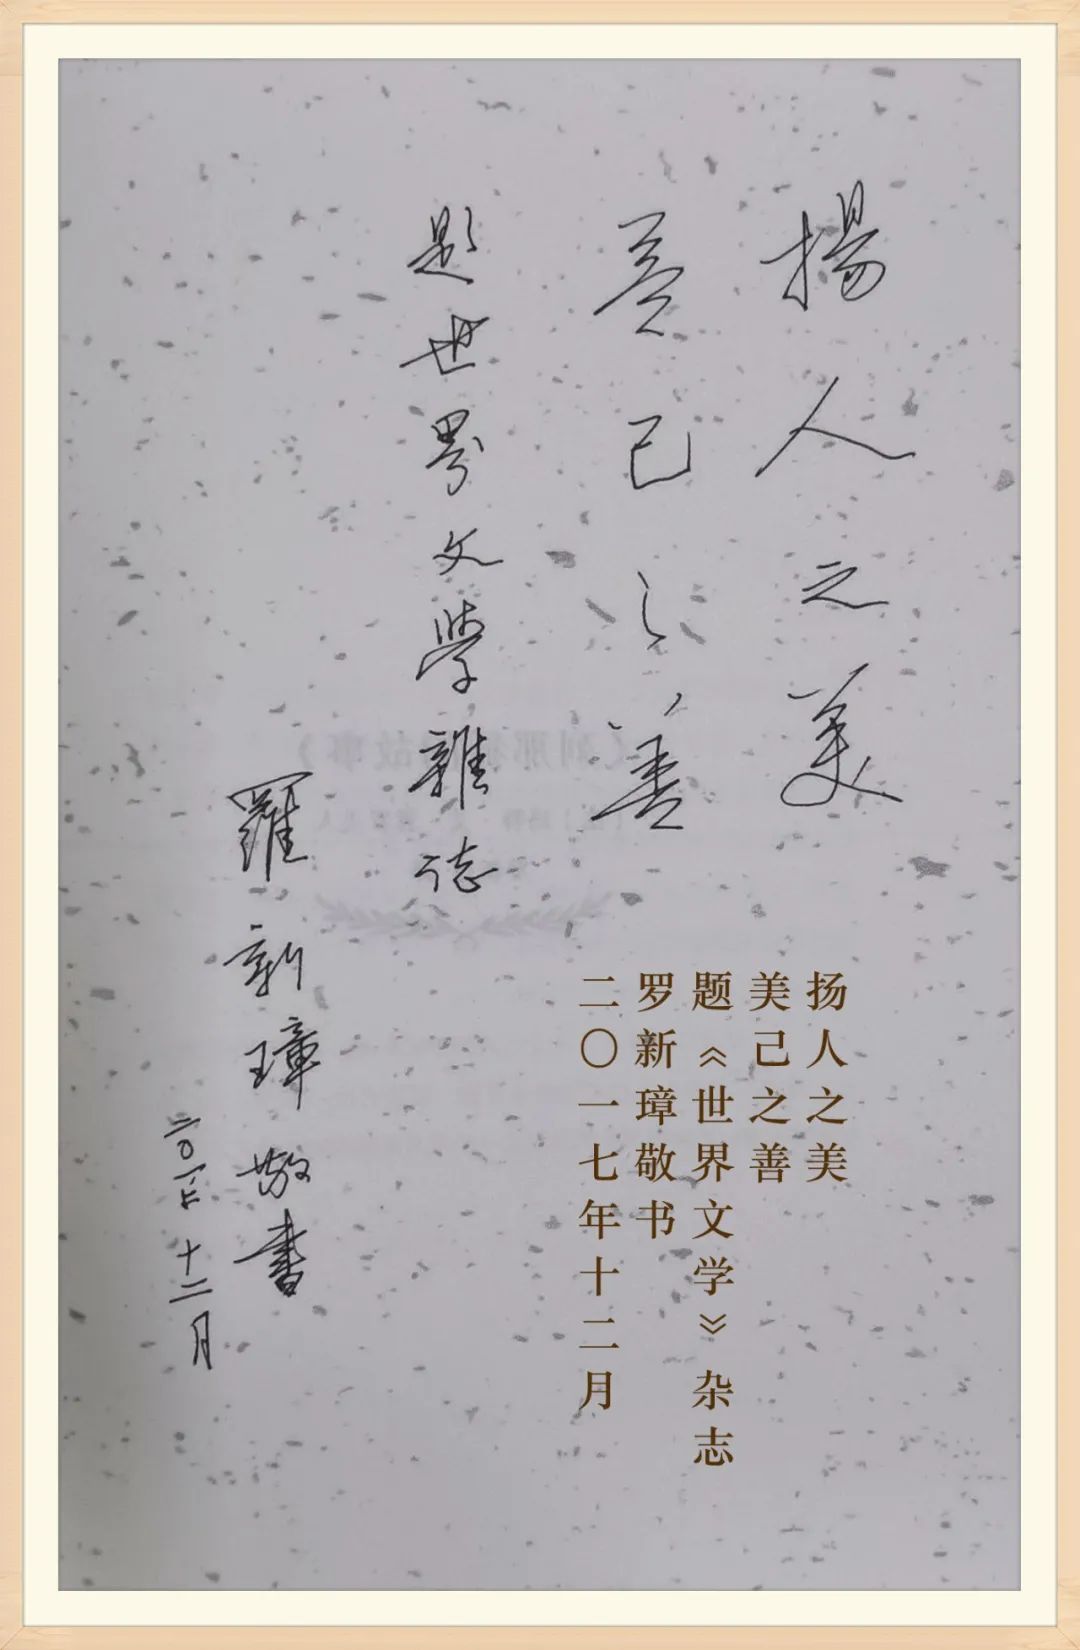 揚人之美
己之善
題世界文學雜誌
羅新璋敬書
二〇一七 十二月
扬人之美
美己之善
题《世界文学》杂志
罗新璋敬书
二〇一七年十二月